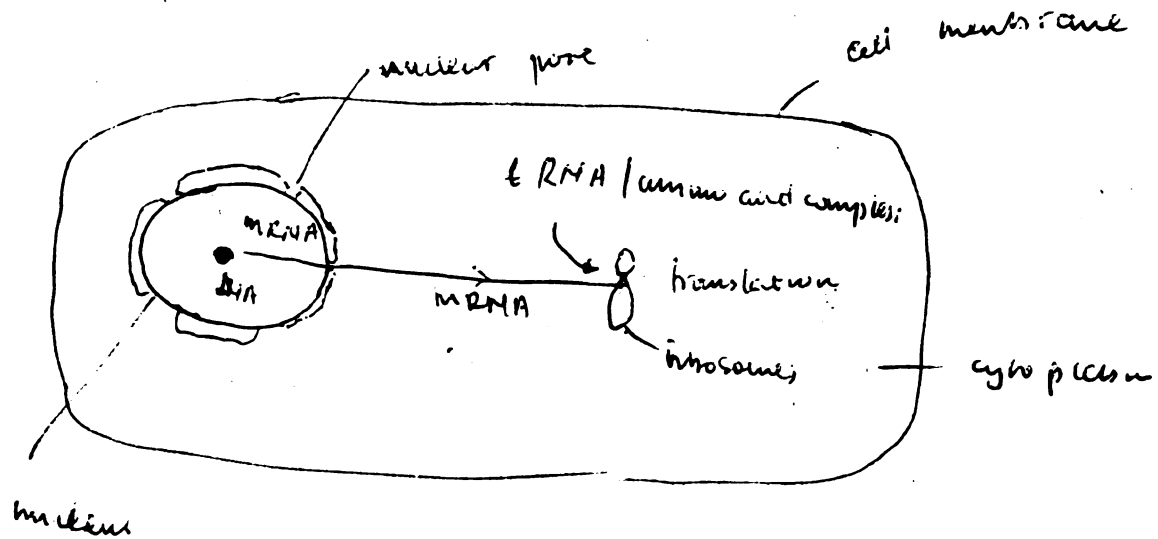 cell membrane
nuclear pore
tRNA / amino acid complex
mRNA
DNA
mRNA
translation
ribosomes
cytoplasm
nucleus